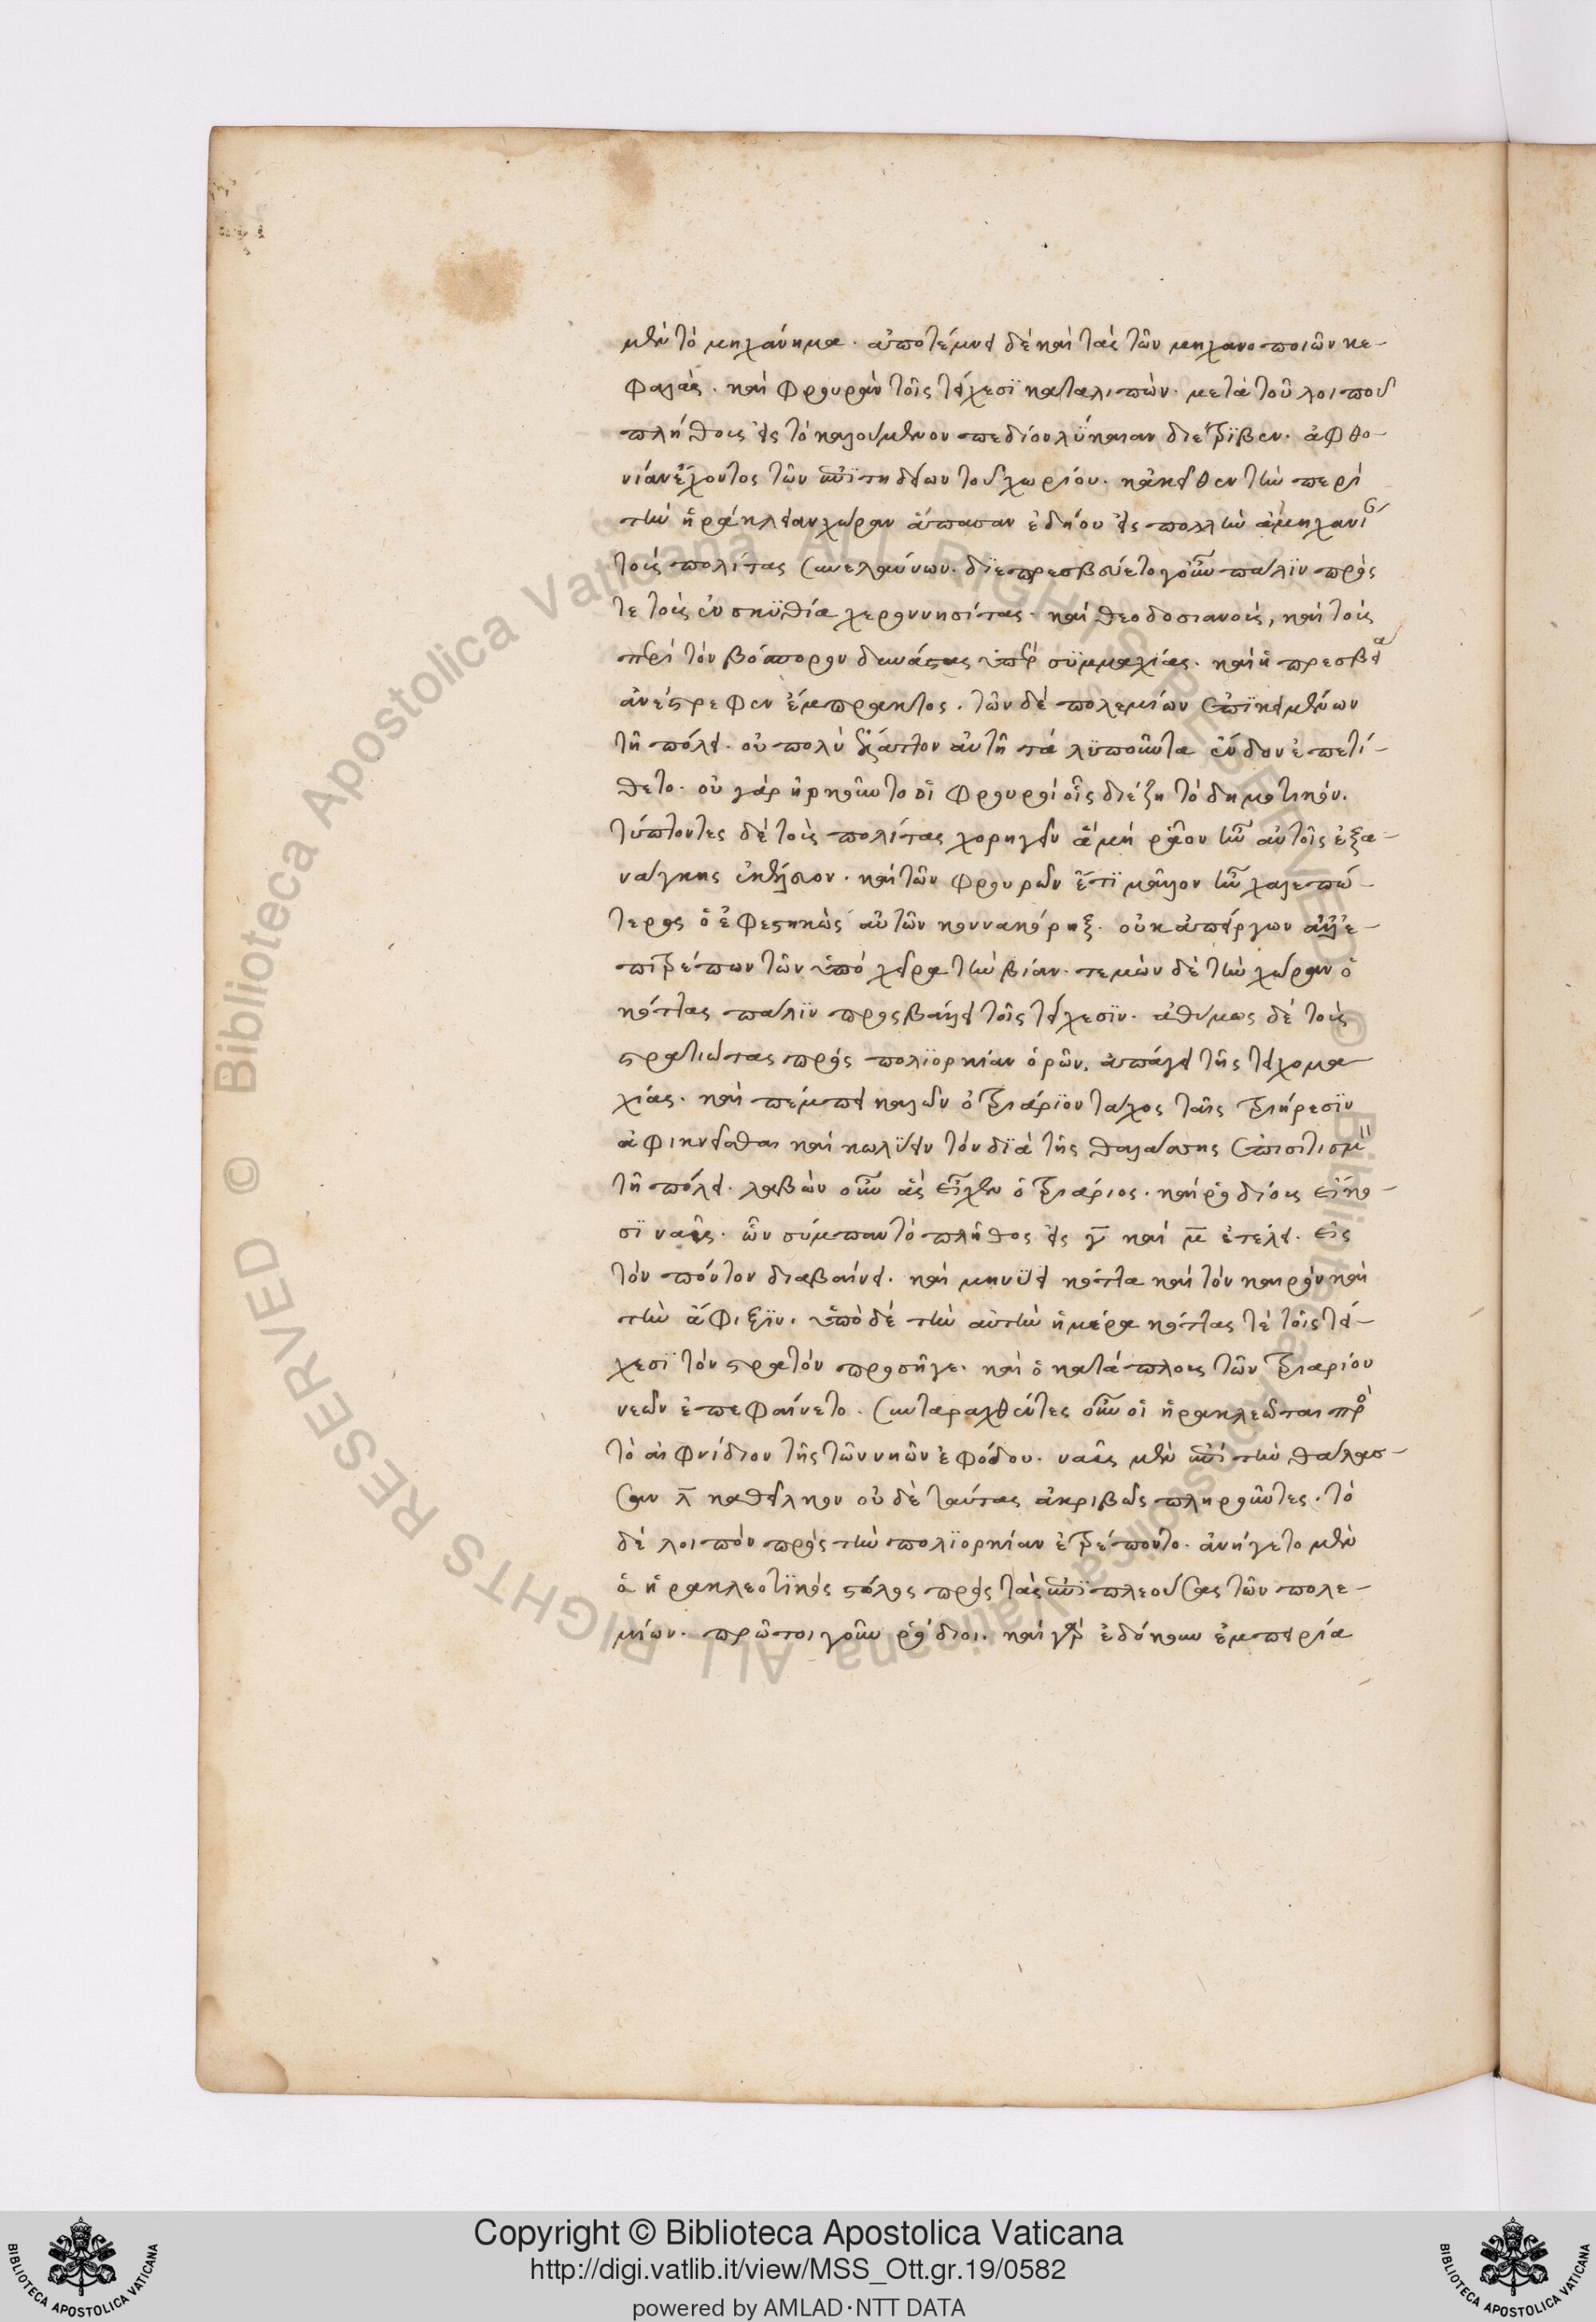 μὲν τὸ μηχάνημα. ἀποτέμνει δὲ καὶ τὰς τῶν μηχανοποιῶν κε-
φαλάς. καὶ φρουρὰν τοῖς τείχεσι καταλιπὼν. μετὰ τοῦ λοιποῦ
πλήθους εἰς τὸ καλούμενον πεδίον λύκαιαν διέτριβεν. ἀφθο-
νίαν ἔχοντος τῶν ἐπιτηδείων τοῦ χωρίου. κἀκεῖθεν τὴν περὶ
τὴν ἡράκλειαν χώραν ἅπασαν ἐδῄου εἰς πολλὴν ἀμηχανί
τοὺς πολίτας συνελαύνων. διεπρεσβεύετο γοῦν πάλιν πρός
τε τοὺς ἐν σκυθία χερρονησίτας. καὶ θεοδοσιανοὺς, καὶ τοὺς
περὶ τὸν βόσπορον δυνάστας ὑπὲρ συμμαχίας. καὶ ἡ πρεσβεία
ἀνέστρεφεν ἔμπρακτος. τῶν δὲ πολεμίων ἐπικειμένων
τῇ πόλει. οὐ πολὺ ἔλαττον αὐτῇ τὰ λυποῦντα ἔνδον ἐπετί-
θετο. οὐ γὰρ ἠρκοῦντο οἱ φρουροὶ οἷς διέζη τὸ δημοτικόν.
τύπτοντες δὲ τοὺς πολίτας χορηγεῖν ἃ μὴ ῥᾷον ἦν αὐτοῖς ἐξα-
νάγκης ἐκέλευον. καὶ τῶν φρουρῶν ἔτι μᾶλλον ἦν χαλεπώ-
τερος ὁ ἐφεστηκὼς αὐτῶν κοννακόρηξ. οὐκ ἀπείργων ἀλλ' ἐ-
πιτρέπων τῶν ὑπὸ χεῖρα τὴν βίαν. τεμὼν δὲ τὴν χώραν ὁ
κόττας πάλιν προσβάλλει τοῖς τείχεσιν. ἀθύμως δὲ τοὺς
στρατιώτας πρὸς πολιορκίαν ὁρῶν, ἀπάγει τῆς τειχομα
χίας. καὶ πέμπει καλῶν ὁ τριάριον τάχος ταῖς τριήρεσιν
ἀφικνεῖσθαι καὶ κωλύειν τὸν διὰ τῆς θαλάσσης ἐπισιτισμ
τῇ πόλει. λαβὼν οὖν ἃς εἶχεν ὁ τριάριος. καὶ ῥοδίους εἴκο-
σι ναῦς. ὧν σύμπαν τὸ πλῆθος εἰς γ καὶ μ ἐτέλει. εἰς
τὸν πόντον διαβαίνει. καὶ μηνύει κόττα καὶ τὸν καιρὸν καὶ
τὴν ἄφιξιν. ὑπὸ δὲ τὴν αὐτὴν ἡμέρα κόττας τὲ τοῖς τεί-
χεσι τὸν στρατὸν προσῆγε. καὶ ὁ κατάπλους τῶν τριαρίου
νεῶν ἐπεφαίνετο. συνταραχθέντες οὖν οἱ ἡρακλεῶται πρὸ
τὸ αἰφνίδιον τῆς τῶν νηῶν ἐφόδου. ναῦς μὲν ἐπὶ τὴν θάλασ-
σαν λ καθεῖλκον οὐδὲ ταύτας ἀκριβῶς πληροῦντες. τὸ
δὲ λοιπὸν πρὸς τὴν πολιορκίαν ἐτρέποντο. ἀνήγετο μὲν
ὁ ἡρακλεοτικὸς στόλος πρὸς τὰς ἐπιπλεούσας τῶν πολε-
μίων. πρῶτοι γοῦν ῥόδιοι. καὶ γὰρ ἐδόκουν ἐμπειρία
Copyright © Biblioteca Apostolica Vaticana
http://digi.vatlib.it/view/MSS_Ott.gr.19/0582
powered by AMLAD·NTT DATA
BIBLIOTECA APOSTOLICA VATICANA
BIBLIOTECA APOSTOLICA VATICANA
© Biblioteca Apostolica Vaticana ALL RIGHTS RESERVED
© Biblioteca Apostolica Vaticana ALL RIGHTS RESERVED